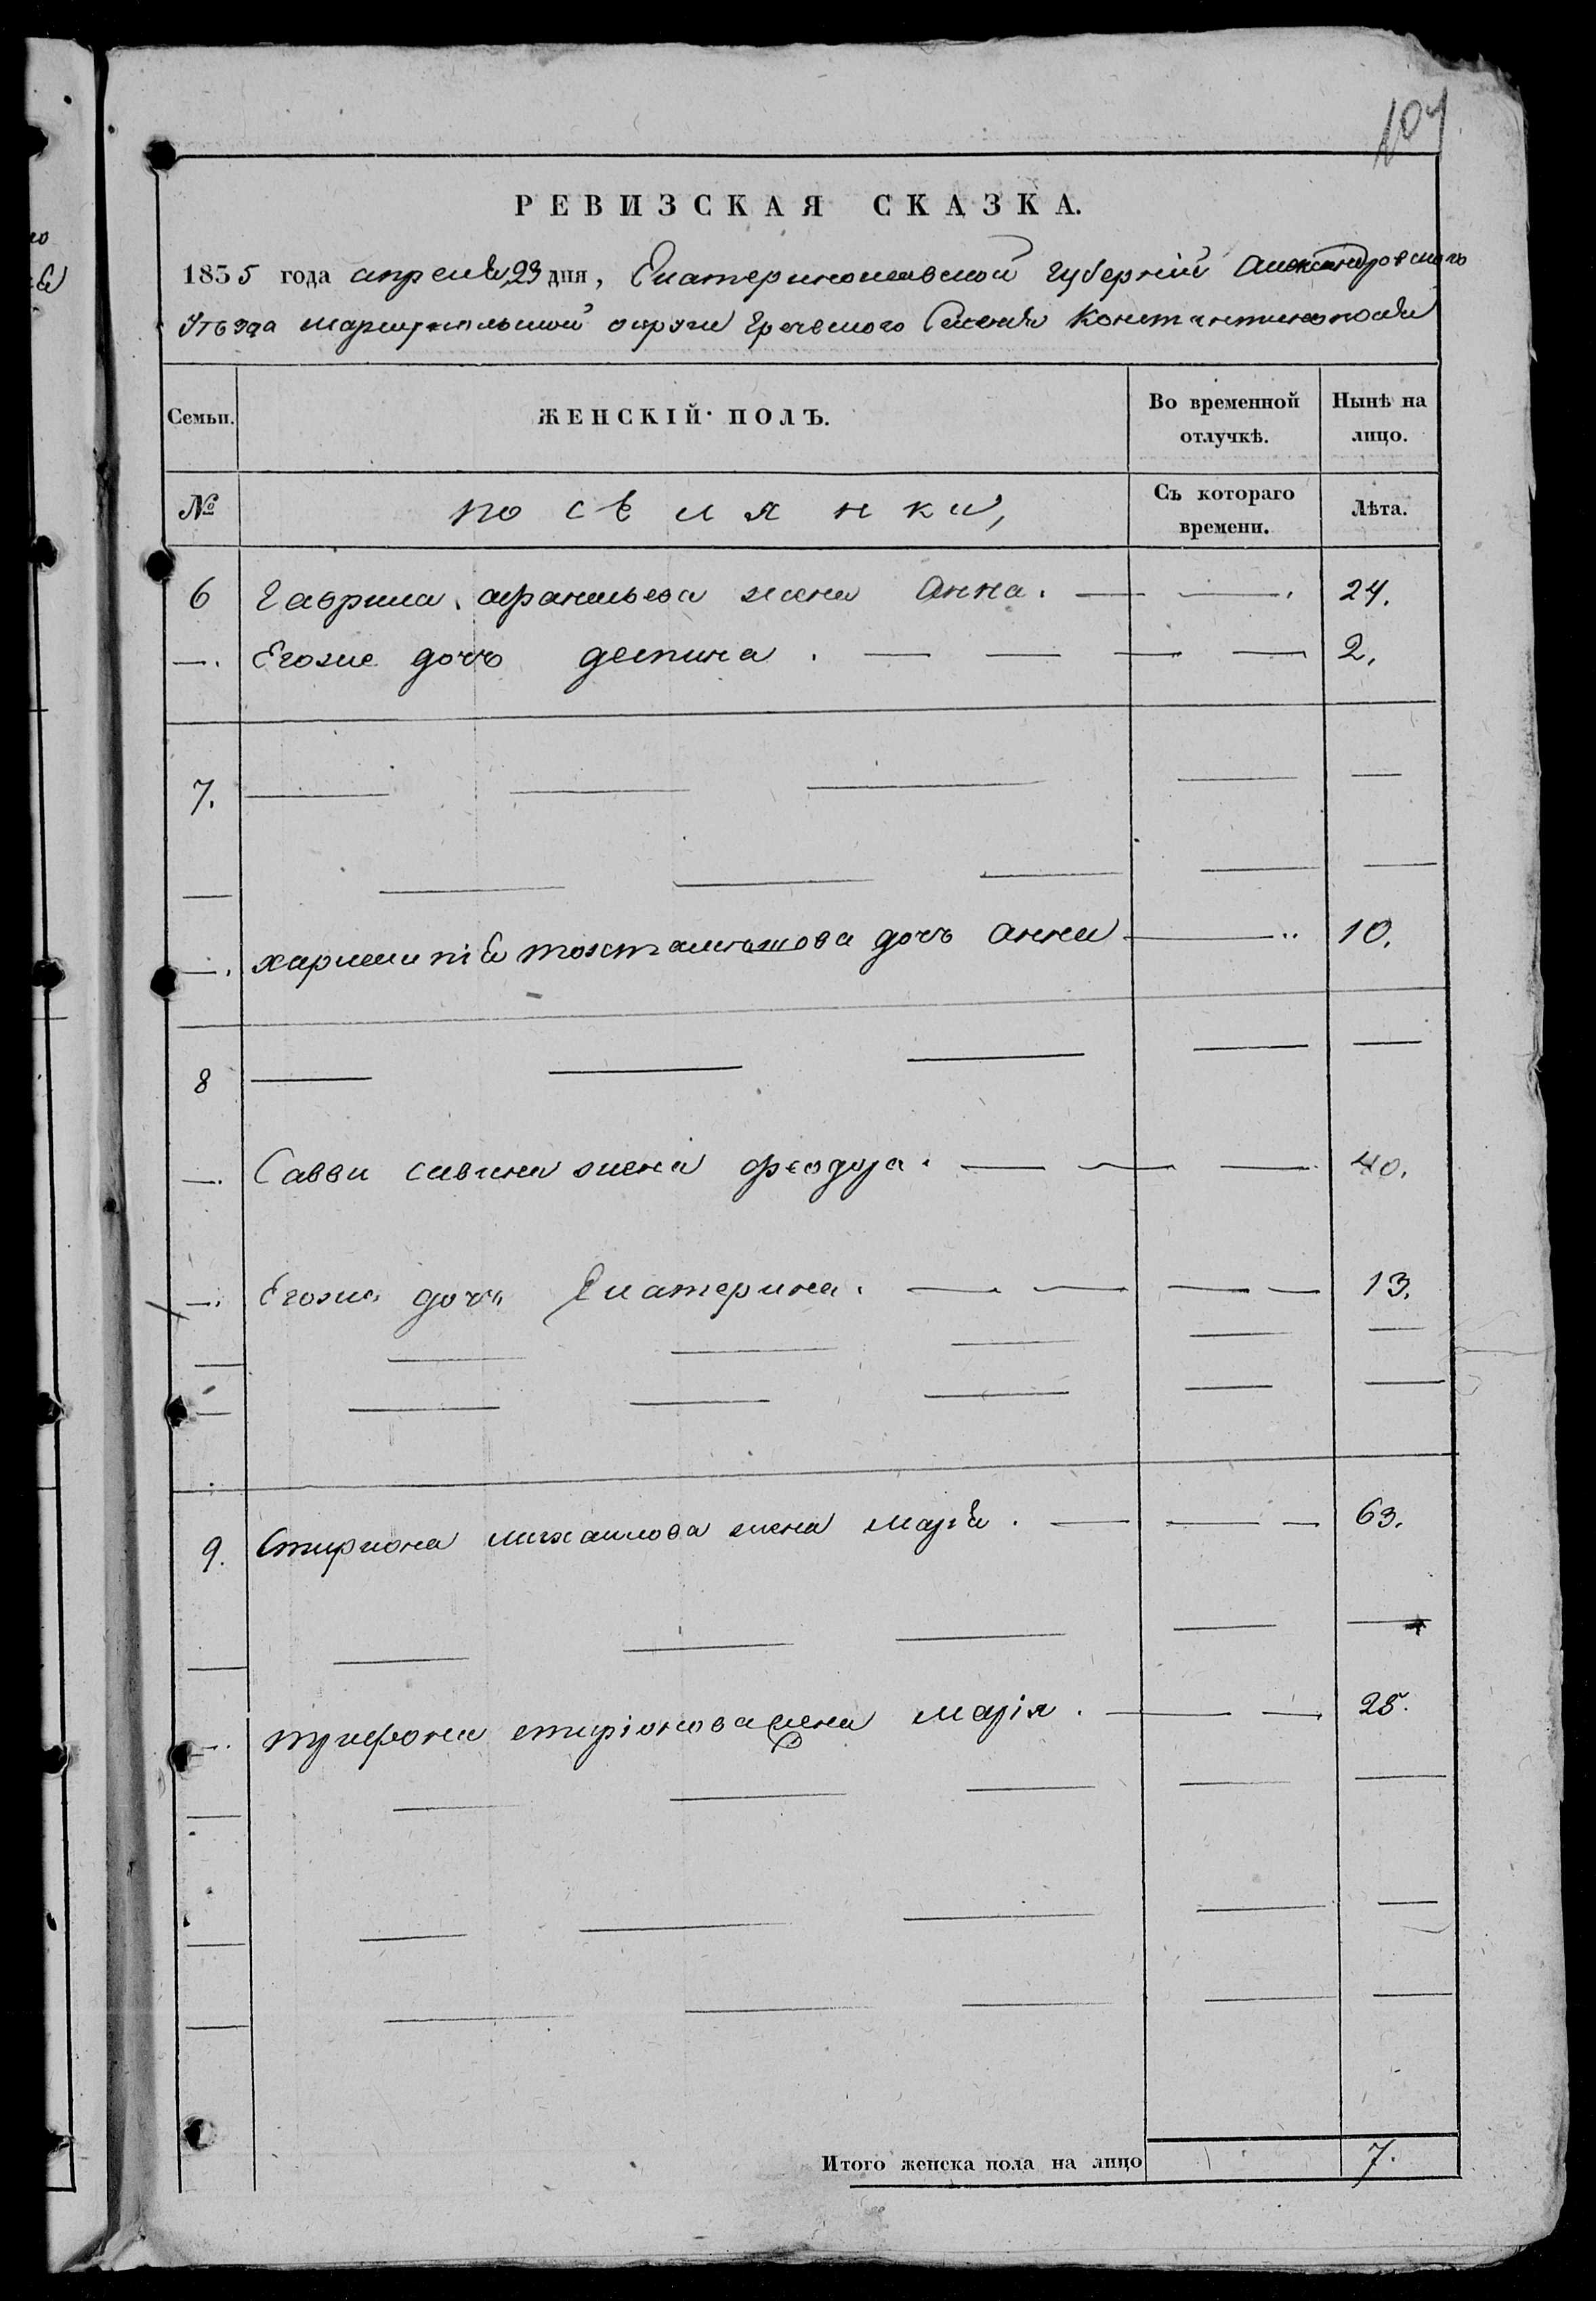 107
РЕВИЗСКАЯ СКАЗКА.
1835 года апреля 23 дня, Екатеринославской губерній Александровского
Уѣзда мариупольской округи греческого Селенія Константинополя
Семьи. ЖЕНСКІЙ ПОЛЪ. Во временной отлучкѣ. Нынѣ на лицо.
№ посѣлянки, Съ котораго времени. Лѣта.
6 Гаврила афанасьева жена Анна. 24.
—. Егоже дочъ деспина. 2.
7.
—. харлампія дочъ Анна 10.
8
—. Савви савина жена феодора. 40.
—. Егоже дочъ Екатерина. 13.
9. Спиріона михаилова жена марія. 63.
—. трифона спиріонова жена марія. 28.
Итого женска пола на лицо 7.